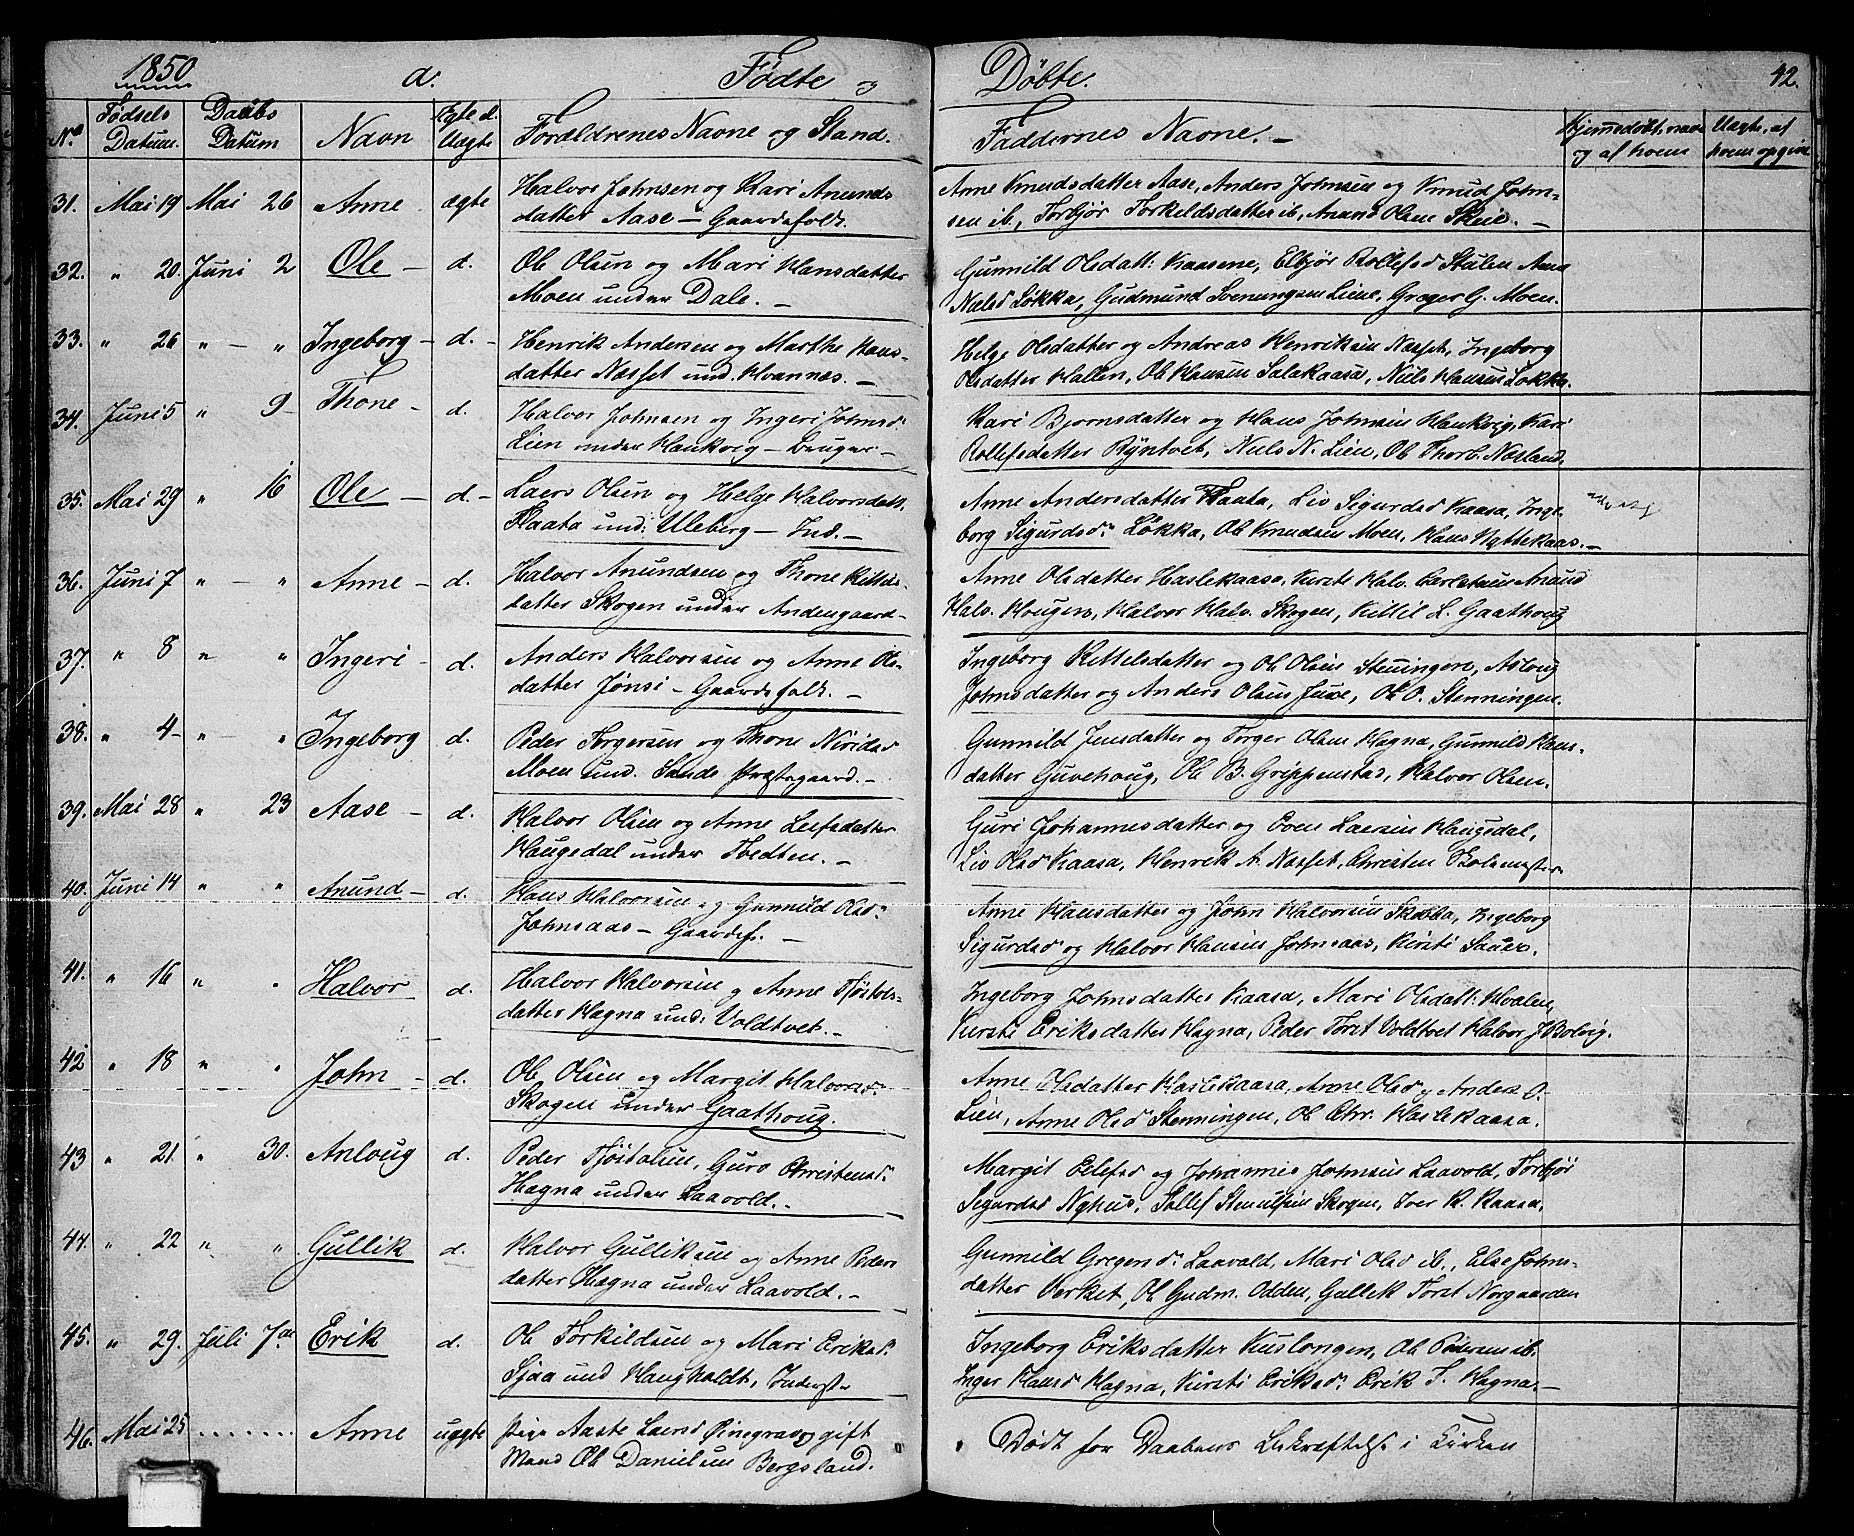 1850 a. Fødte og Døbte. 42.
No Fødsels Datum. Daabs Datum Navn Egte el. Uægte Forældrenes Navne og Stand. Faddernes Navne. Hjemmedøbt, naar og af hvem Uægte, af hvem opgivet
31. Mai 19 Mai 26 Anne ægte Halvor Johnsen og Kari Anunds
datter Aase – Gaardsfolk.
Anne Knudsdatter Aase, Anders Johnsen og Knud John-
sen ib., Torbjør Torkeldsdatter ib, Anund Olsen Skeie. –
32. " 20. Juni 2 Ole – d. Ole Olsen og Mari Hansdatter
Moen under Dale. –
Gunnild Olsdatt: Kaasene, Elbjør Rollefsd Stulen Anne
Nielsd Løkka, Gudmund Svenungsen Liene, Greger G. Moen.
33. " 26 " – " Ingeborg – d. – Henrik Andersen og Marthe Hans-
datter Næsset und. Hvannæs. –
Helge Olsdatter og Andreas Henriksen Næsset, Ingeborg
Olsdatter Hallen, Ole Hansen Salakaasa, Niels Hansen Løkka.
34. Juni 5 " 9 Thone – d. Halvor Johnsen og Ingeri Johnsd:
Lien under Haukvig – Bruger –
Kari Bjørnsdatter og Hans Johnsen Haukvig, Kari
Rollefsdatter Ryntvet, Niels N. Lien, Ole Thorb. Næsland.
35. Mai 29 " 16 Ole – d. – Laers Olsen og Helge Halvorsdatt.
Flaata und: Uleberg – Ind. –
Anne Andersdatter Flaata, Liv Sigurdsd Kaasa, Inge-
borg Sigurdsd. Løkka, Ole Knudsen Moen, Hans Hyttekaas. –
36. Juni 7 " – " Anne – d. Halvor Anundsen og Thone Kittils-
datter Skogen under Andersgaard –
Anne Olsdatter Haslekaasa, Kirsti Halv. Anund
Halv. Haugen, Halvor Halv. Skogen, Kittil L. Gaathoug
37. " 8 " " Ingeri – d. Anders Halvorsen og Anne Ols-
datter Jønsi – Gaardsfolk. –
Ingeborg Kittelsdatter og Ole Olsen Steningen, Asloug
Johnsdatter og Anders Olsen Juve, Ole O. Stenningen.
38. " 4 – " – " Ingeborg d. Peder Torgersen og Thone Niridsd
Moen und. Sands Præstegaard. –
Gunnild Jensdatter og Torger Olsen Hagna, Gunnild Hans-
datter Guvehoug, Ole B. Grippenstad, Halvor Olsen.
39. Mai 28 " 23 Aase – d. Halvor Olsen og Anne Leifsdatter
Haugedal under Tvedten. –
Guri Johannesdatter og Even Laersen Haugedal,
Liv Olsd Kaasa, Henrik A. Næsset, Christen Skolemester
40. Juni 14 " " Anund – d. Hans Halvorsen og Gunnild Olsd.
Johnsaas – Gaardsf. –
Anne Hansdatter og John Halvorsen Skobba, Ingeborg
Sigurdsd og Halvor Hansen Johnsaas, Kirsti
41. " 16 " " Halvor d. Halvor Halvorsen og Anne Tjøstols-
datter Hagna und: Voldtvet. –
Ingeborg Johnsdatter Kaasa, Mari Olsdatt: Hvalen,
Kirsti Eriksdatter Hagna, Peder Torst Voldtvet Halvor J Bolvig.
42 " 18 " " John – d. Ole Olsen og Margit Halvorsd.
Skogen under Gaathoug.
Anne Olsdatter Haslekaasa, Anne Olsd og Anders O.
Lien, Anne Olsd Stenningen, Ole Chr. Haslekaasa.
43 " 21. " 30. Anloug d. Peder Tjøstolsen, Guro Christensd.
Hagna under Laavold. –
Margit Ellefsd og Johannes Johnsen Laavold, Torbjør
Sigurdsd Nyhus, Sallef Stenulfsen Skogen, Iver K. Kaasa.
44. " 22 " " Gullik d. Halvor Gulliksen og Anne Peders
datter Hagna under Laavold. –
Gunnild Gregersd. Laavold, Mari Olsd ib., Else Johns-
datter Verket, Ole Gudm. Odden, Gullik Torst Norgaarden
45. " 29. Juli 7de Erik d. Ole Torkildsen og Mari Eriksd.
Sjaa und Haugholdt, Inderst
Ingeborg Eriksdatter Kuslongen, Ole Pedersen ib.
Inger Hansd Hagna, Kirsti Eriksd: Erik T. Hagna. –
46. Mai 25 ....... Anne uægte Pige Aaste Laersd Ringerad og gift
Mand Ole Danielsen Bergsland.
Dødt før Daabens Bekræftelse i Kirken